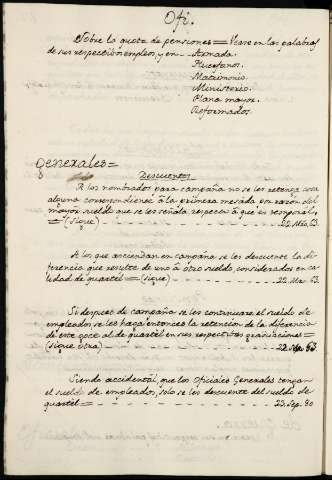 Ofi.
Sobre la quota de pensiones = Vease en las palabras
de sus respectivos empleos, y en - Armada.
Huerfanos.
Matrimonio.
Ministerio.
Plana mayor.
Reformados.
Generales =
Descuentos
A los nombrados para campaña no se les retenga cosa
alguna correspondiente à la primera mesada en razon del
mayor sueldo que se les señala respecto à que es temporal,
= (Sigue) 22. Mzo. 63.
A los que asciendan en campaña se les descuente la di-
ferencia que resulte de uno à otro sueldo, considerados en ca-
lidad de quartel = (sigue) 22. Mzo. 63.
Si despues de campaña se les continuare el sueldo de
empleados se les haga entonces la retencion de la diferencia
de este goce al de quartel en sus respectivas graduaciones =
(sigue otra) 22. Mzo. 63.
Siendo accidental que los oficiales Generales tengan
el sueldo de empleados, solo se les descuente del sueldo de
quartel = 23. Sep. 80